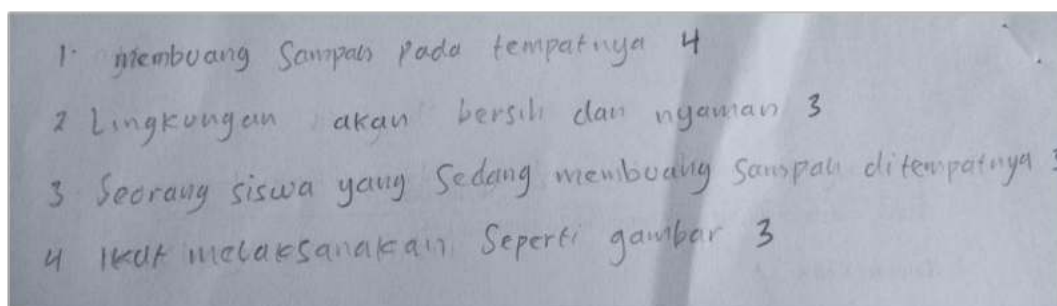 1. membuang Sampah pada tempatnya 4
2 Lingkungan akan bersih dan nyaman 3
3 Seorang siswa yang Sedang membuang Sampah ditempatnya 3
4 Ikut melaksanakan Seperti gambar 3